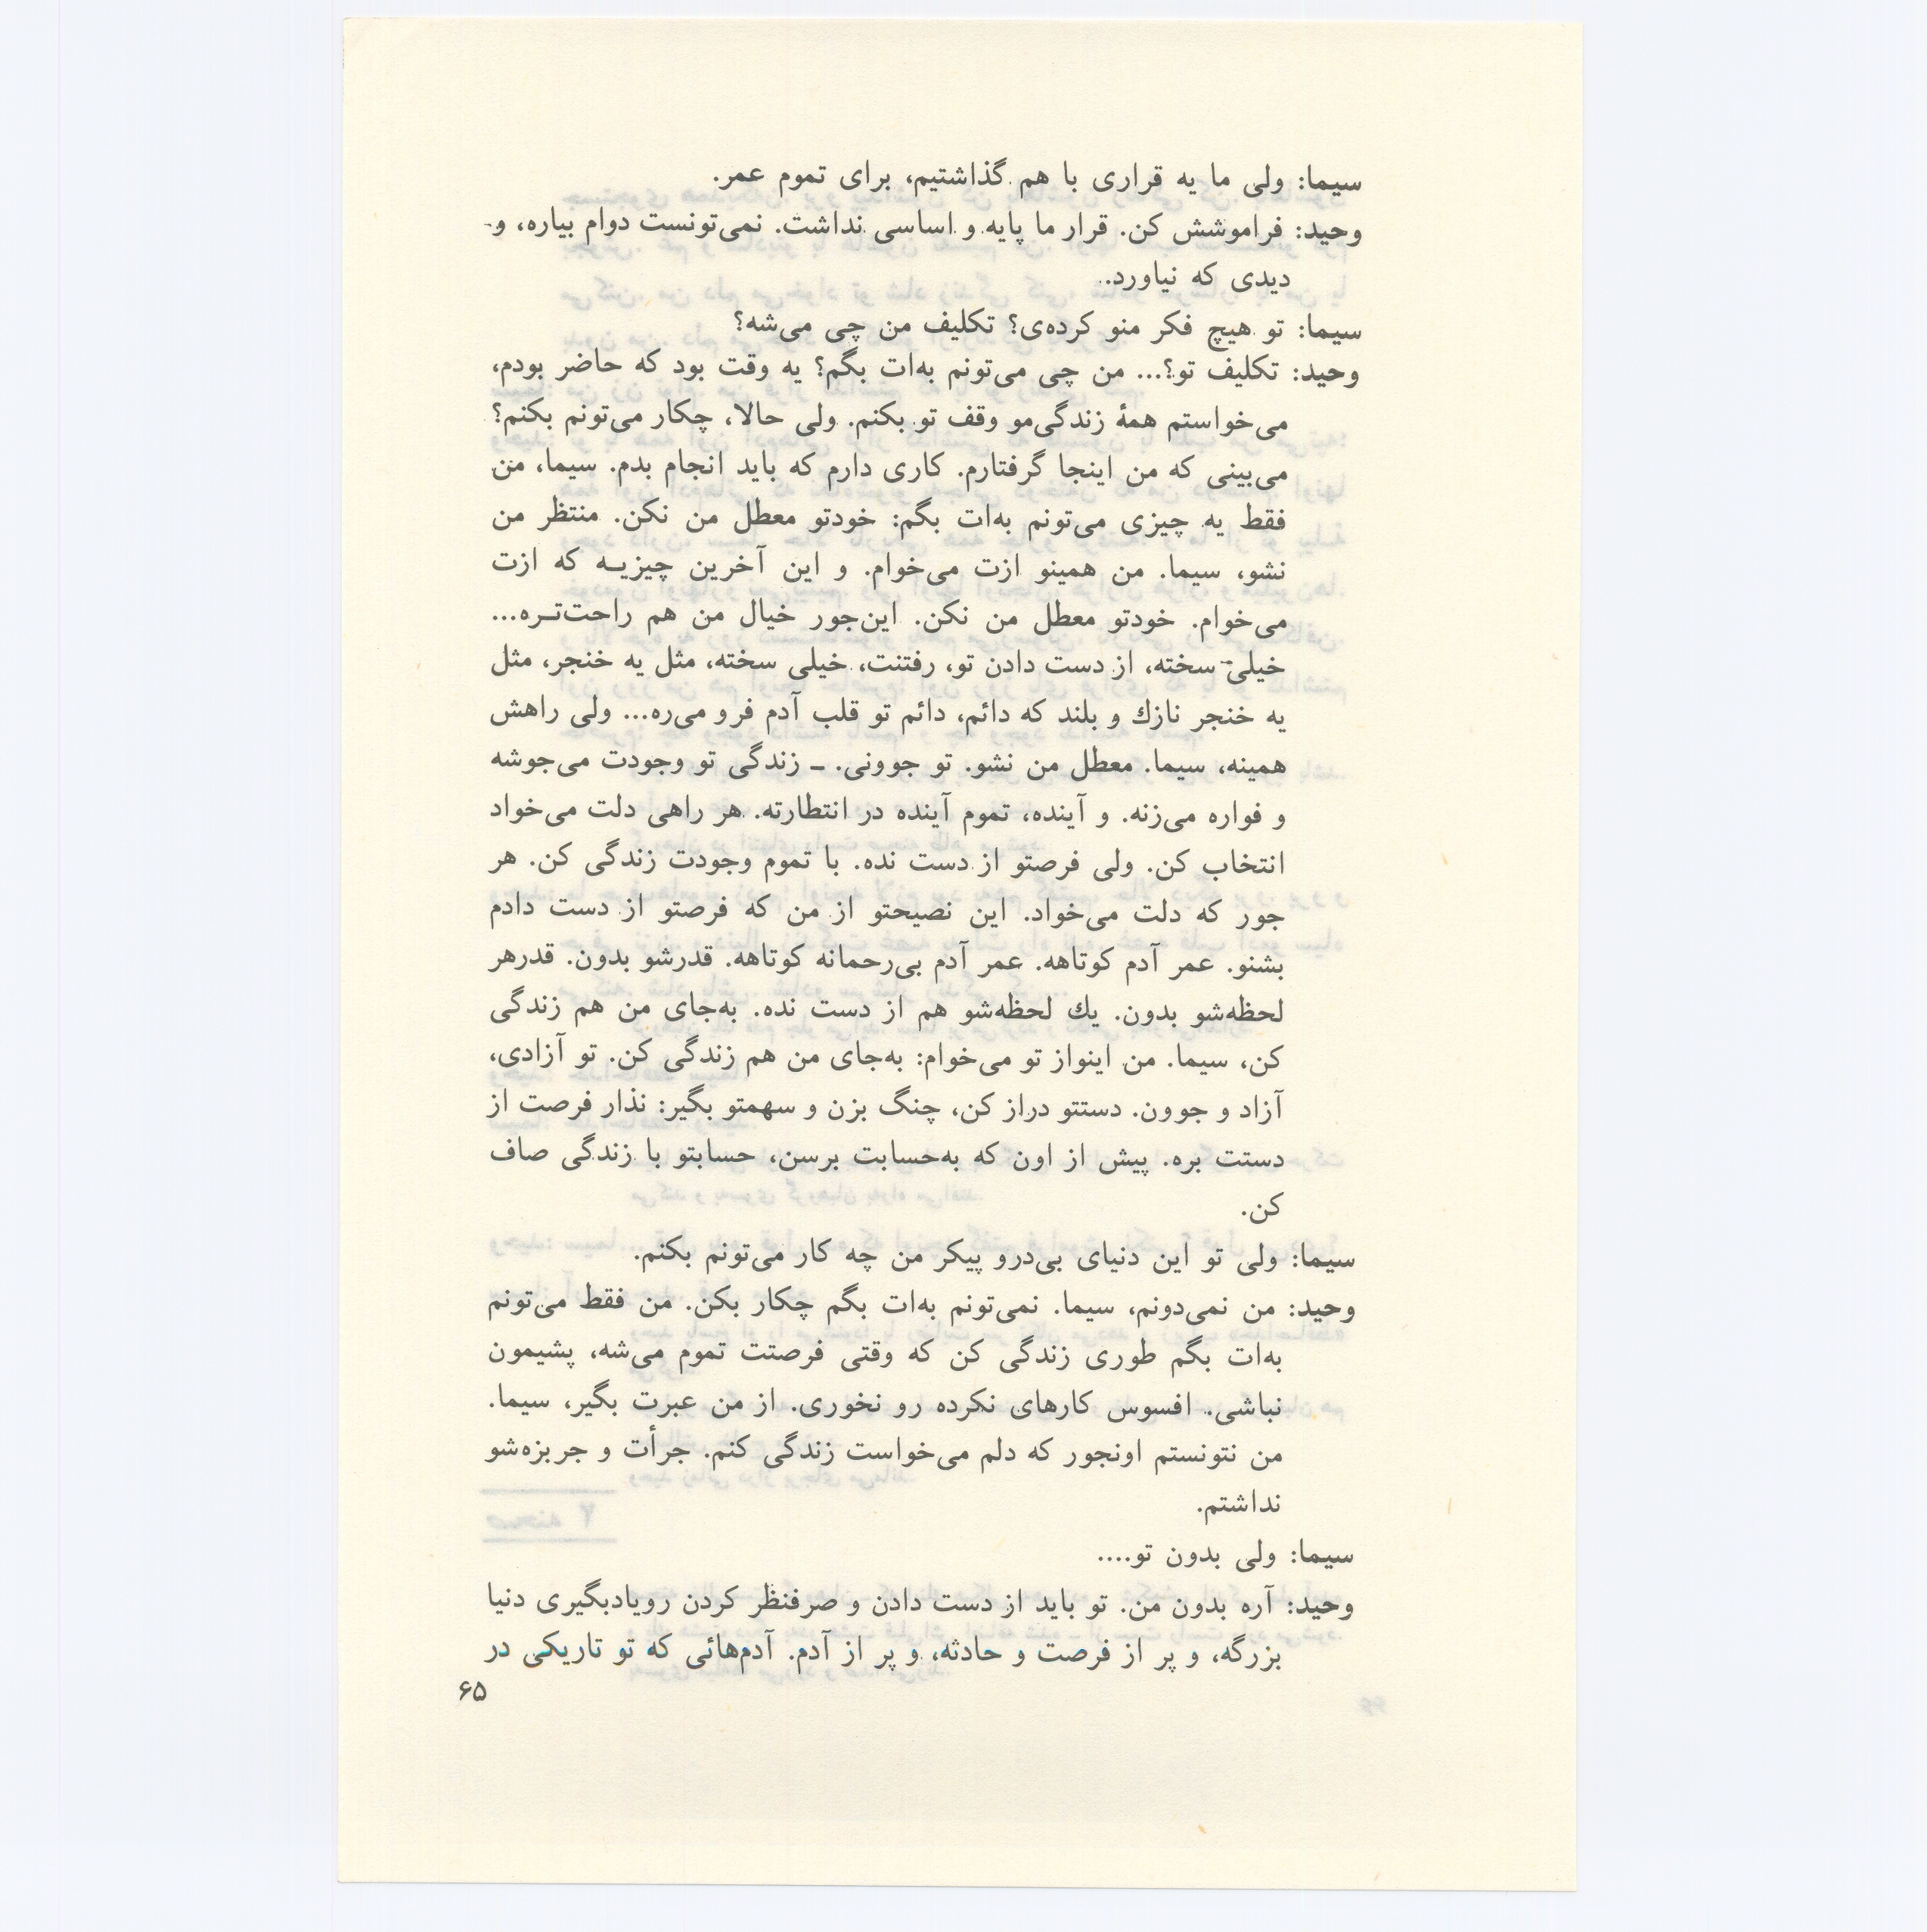 سیما: ولی ما یه قراری با هم گذاشتیم، برای تموم عمر.
وحید: فراموشش کن. قرار ما پایه و اساسی نداشت. نمی‌تونست دوام بیاره، و
دیدی که نیاورد..
سیما: تو هیچ فکر منو کرده‌ی؟ تکلیف من چی می‌شه؟
وحید: تکلیف تو؟... من چی می‌تونم به‌ات بگم؟ یه وقت بود که حاضر بودم،
می‌خواستم همهٔ زندگی‌مو وقف تو بکنم. ولی حالا، چکار می‌تونم بکنم؟
می‌بینی که من اینجا گرفتارم. کاری دارم که باید انجام بدم. سیما، من
فقط یه چیزی می‌تونم به‌ات بگم: خودتو معطل من نکن. منتظر من
نشو، سیما. من همینو ازت می‌خوام. و این آخرین چیزیـه که ازت
می‌خوام. خودتو معطل من نکن. این‌جور خیال من هم راحت‌تـره...
خیلی سخته، از دست دادن تو، رفتنت، خیلی سخته، مثل یه خنجر، مثل
یه خنجر نازك و بلند که دائم، دائم تو قلب آدم فرو می‌ره... ولی راهش
همینه، سیما. معطل من نشو. تو جوونی. ـ زندگی تو وجودت می‌جوشه
و فواره می‌زنه. و آینده، تموم آینده در انتظارته. هر راهی دلت می‌خواد
انتخاب کن. ولی فرصتو از دست نده. با تموم وجودت زندگی کن. هر
جور که دلت می‌خواد. این نصیحتو از من که فرصتو از دست دادم
بشنو. عمر آدم کوتاهه. عمر آدم بی‌رحمانه کوتاهه. قدرشو بدون. قدرهر
لحظه‌شو بدون. یك لحظه‌شو هم از دست نده. به‌جای من هم زندگی
کن، سیما. من اینواز تو می‌خوام: به‌جای من هم زندگی کن. تو آزادی،
آزاد و جوون. دستتو دراز کن، چنگ بزن و سهمتو بگیر: نذار فرصت از
دستت بره. پیش از اون که به‌حسابت برسن، حسابتو با زندگی صاف
کن.
سیما: ولی تو این دنیای بی‌درو پیکر من چه کار می‌تونم بکنم.
وحید: من نمی‌دونم، سیما. نمی‌تونم به‌ات بگم چکار بکن. من فقط می‌تونم
به‌ات بگم طوری زندگی کن که وقتی فرصتت تموم می‌شه، پشیمون
نباشی. افسوس کارهای نکرده رو نخوری. از من عبرت بگیر، سیما.
من نتونستم اونجور که دلم می‌خواست زندگی کنم. جرأت و جربزه‌شو
نداشتم.
سیما: ولی بدون تو....
وحید: آره بدون من. تو باید از دست دادن و صرفنظر کردن رویادبگیری دنیا
بزرگه، و پر از فرصت و حادثه، و پر از آدم. آدم‌هائی که تو تاریکی در
۶۵